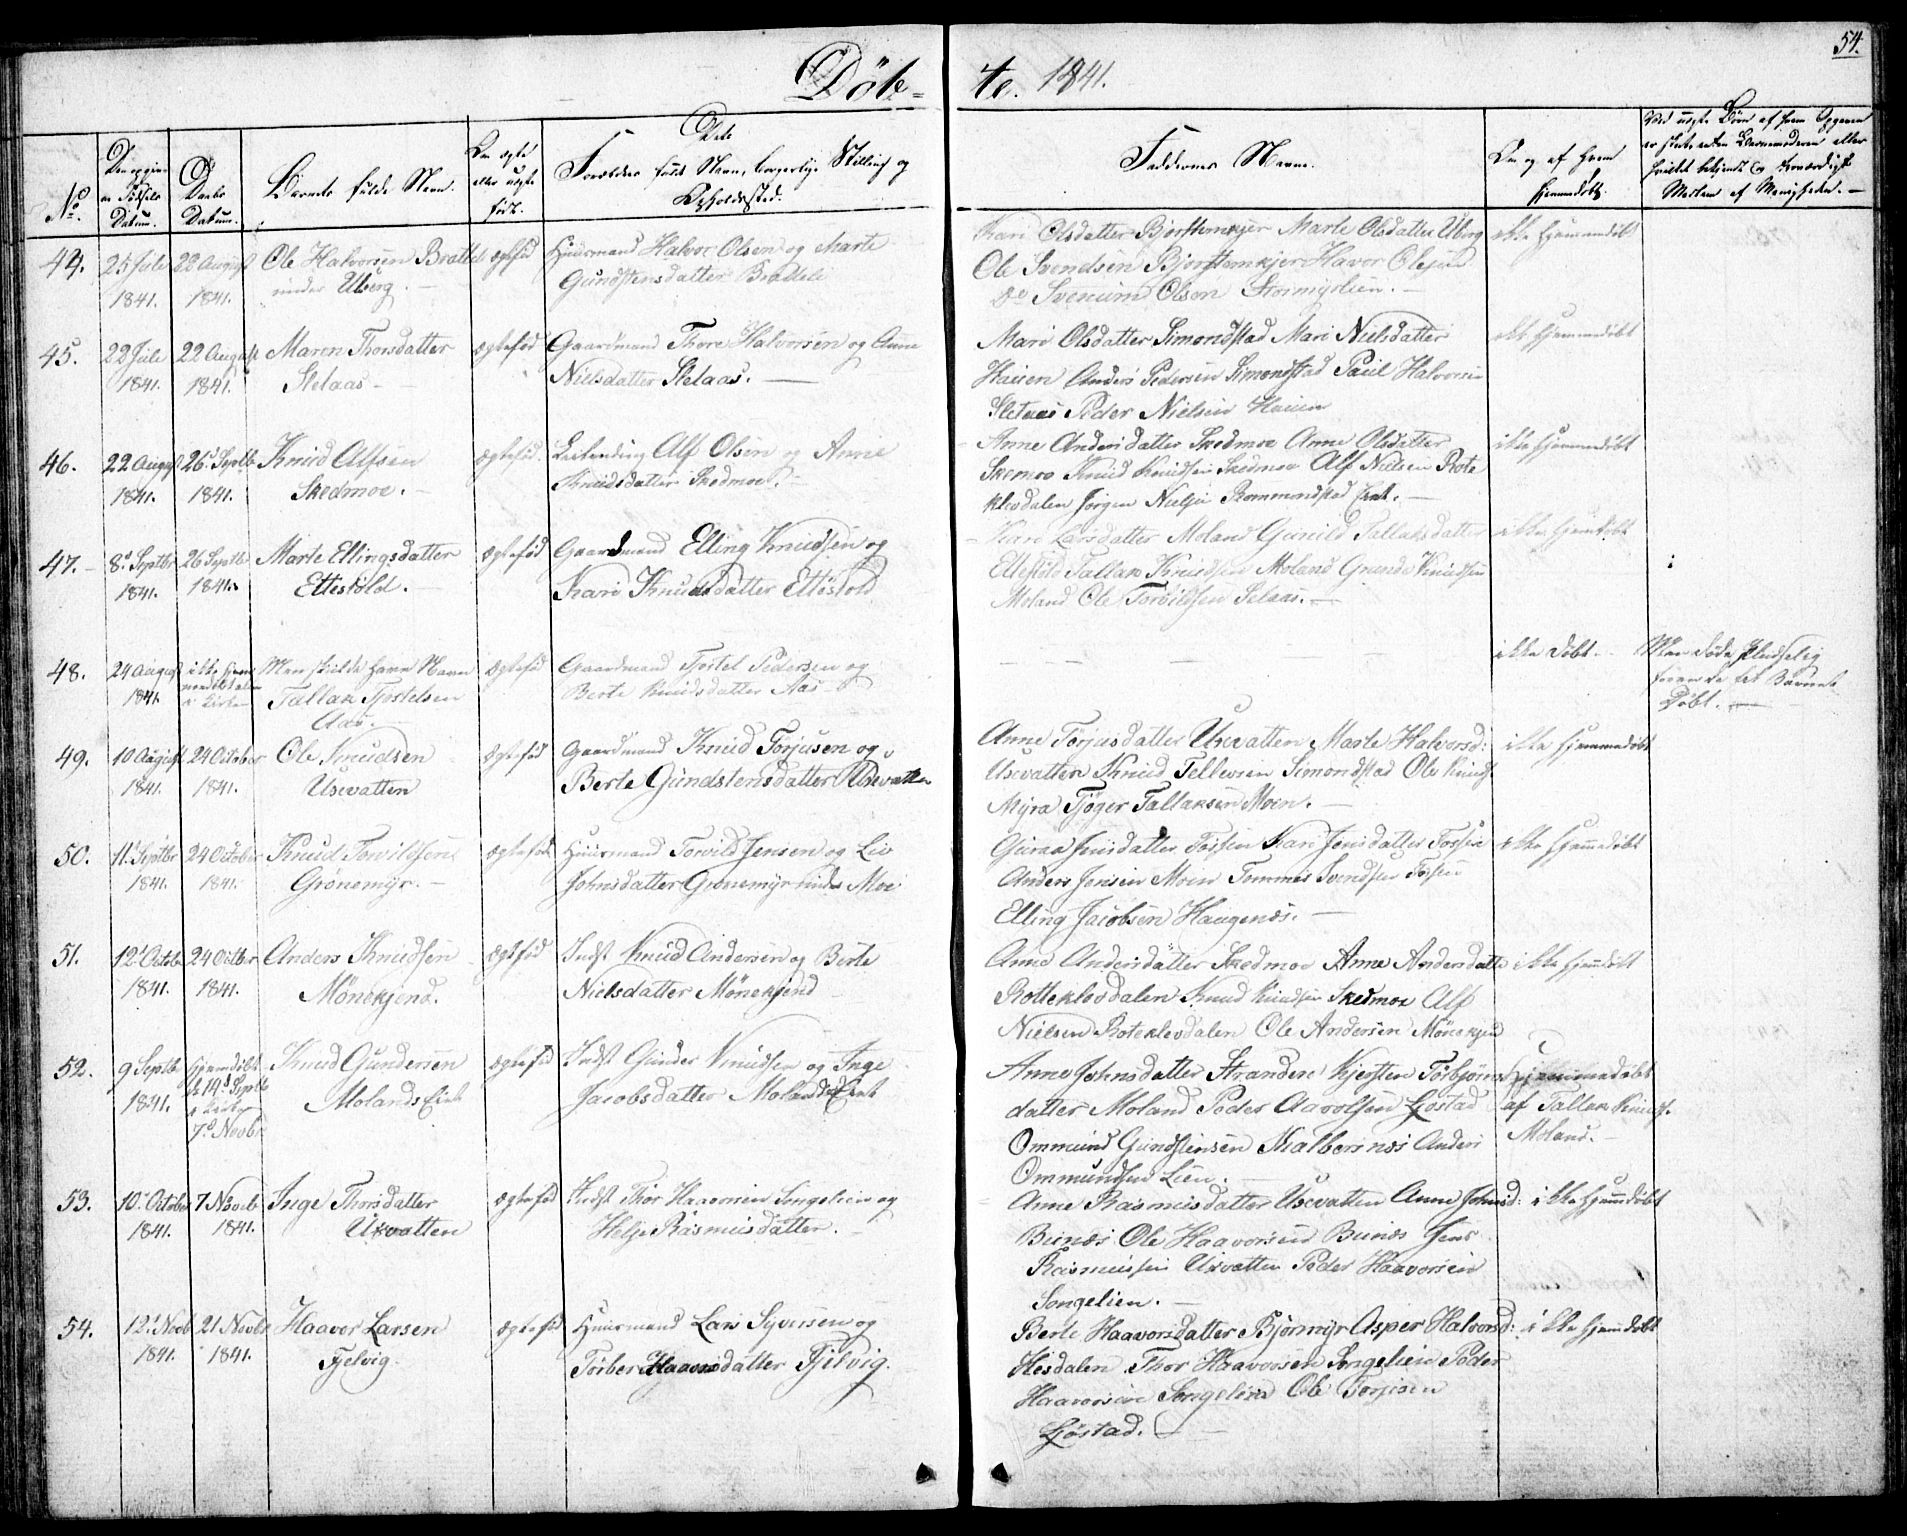 54.
Døb=
te. 1841.
No.
Den opgivne Fødsels Datum.
Daabs Datum.
Barnets fulde Navn.
Om ægte eller uægte født.
Dets
Forældres fulde Navn, borgerlige Stilling og
Opholdssted.
Faddernes Navne.
Om og af hvem
hjemmedøbt.
44.
25 Juli
1841.
22 August
1841.
Ole Halvorsen Bratteli
under Uberg.
ægtefød
Huusmand Halvor Olsen og Marte
Gundstensdatter Bratteli
Kari Olsdatter Bjorstemkjer Marte Olsdatter Uberg
Ole Svendsen Bjorstemkjer Havor Olsen
do Svenum Olson
ikke hjemmedøbt
45.
22 Juli
1841.
22 August
1841.
Maren Thorsdatter
Sletaas
ægtefød
Gaardmand Thore Halvorsen og Anne
Nielsdatter Sletaas.
Mari Olsdatter Simondstad Mari Nielsdatter
Hauen Anders Pedersen Simondstad Paul Halvorsen
Sletaas Peder Nielsen Hauen
ikke hjemmedøbt
46.
22 August
1841.
26 Septbr
1841.
Knud Alfsen
Skedmoe.
ægtefød.
Leilending Alf Olsen og Anne
Knudsdatter Skedmoe.
Anne Andersdatter Skedmoe Anne Olsdatter
Skemoe Knud Knudsen Skedmoe Alf Nielsen Rote
klevdalen Jørgen Nielsen Rommundstad Eent.
ikke hjemmedøbt
47.
8 Septbr
1841.
26 Septbr
1841.
Marte Ellingsdatter
Ettestøld.
ægtefød
Gaardmand Elling Knudsen og
Kari Knudsdatter Ettestøld
Kari Larsdatter Moland Gunild Tallaksdatter
Ettestøld Tallak Knudsen Moland Grunde Knudsen
Moland Ole Torvildsen Selaas.
ikke hjemdøbt
48.
24 August
1841
ikke hjem
i Kirken
Men skulde havn Navn
Tallak Tjostelsen
Aas.
ægtefød
Gaardmand Tjostel Pedersen og
Berte Knudsdatter Aas
ikke døbt.
Men døde pludselig
førend det blev
Døbt.
49.
10 August
1841.
24 October
1841.
Ole Knudsen
Usevatten
ægtefød
Gaardmand Knud Torjusen og
Berte Gundstensdatter Usevatten
Anne Torjusdatter Usevatten Marte Halvorsd:
Usevatten Knud Tellevsen Simondstad Ole Knuds.
Myra Tjøger Tallaksen Moen.
ikke hjemmedøbt
50.
11 Septbr
1841.
24 October
1841.
Knud Torvildsen
Grønemyr.
ægtefød
Huusmand Torvild Jensen og Liv
Johnsdatter Grønemyr under Moe
Gurea Jensdatter Fossen Kari Jensdatter Fossen
Anders Jensen Moen Tommes Svendsen Fossen
Elling Jacobsen Haugenes.
ikke hjemmedøbt
51.
12 October
1841.
24 Octbr
1841.
Anders Knudsen
Mønekjend.
ægtefød
Indst Knud Andersen og Berte
Nielsdatter Mønekjend
Anne Andersdatter Skedmoe Anne Andersdatte
Rotteklevdalen Knud Knudsen Skedmoe Alf
Nielsen Roteklevdalen Ole Andersen Mønekjend
ikke hjemdøbt
52.
9 Septbr
1841.
hjemdøbt
d. 14d Septbr
i Kirken
7d Novbr
Knud Gundersen
Molands Eie
ægtefød
Indst Gunder Knudsen og Inge
Jacobsdatter Molands Eent
Anne Johnsdatter Stranden Kjersten Torbjørns
datter Moland Peder Aavolsen Gjøstad
Ommund Gundstensen Kalbersnæs Anders
Ommundsen Lien.
hjemmedøbt
af Tallak Knuds.
Moland.
53.
10 October
1841.
7 Novbr
1841.
Inge Thorsdatter
Usevatten
ægtefød
Indst Thor Haavorsen Songelien og
Helje Rasmusdatter.
Anne Rasmusdatter Usevatten Anne Johnsd:
Buenæs Ole Haavorsen Buenæs Jens
Rasmussen Usevatten Peder Haavorsen
Songelien.
ikke hjemdøbt
54.
12 Novb
1841.
21 Novbr
1841.
Haavor Larsen
Fjelvig.
ægtefød
Huusmand Lars Syversen og
Torber Haavorsdatter Fjelvig.
Berte Haavorsdatter Bjørmyr Asper Halvorsd:
Hesdalen Thor Haavorsen Songelien Peder
Haavorsen Songelien Ole Torjusen
Gjøstad.
ikke hjemdøbt